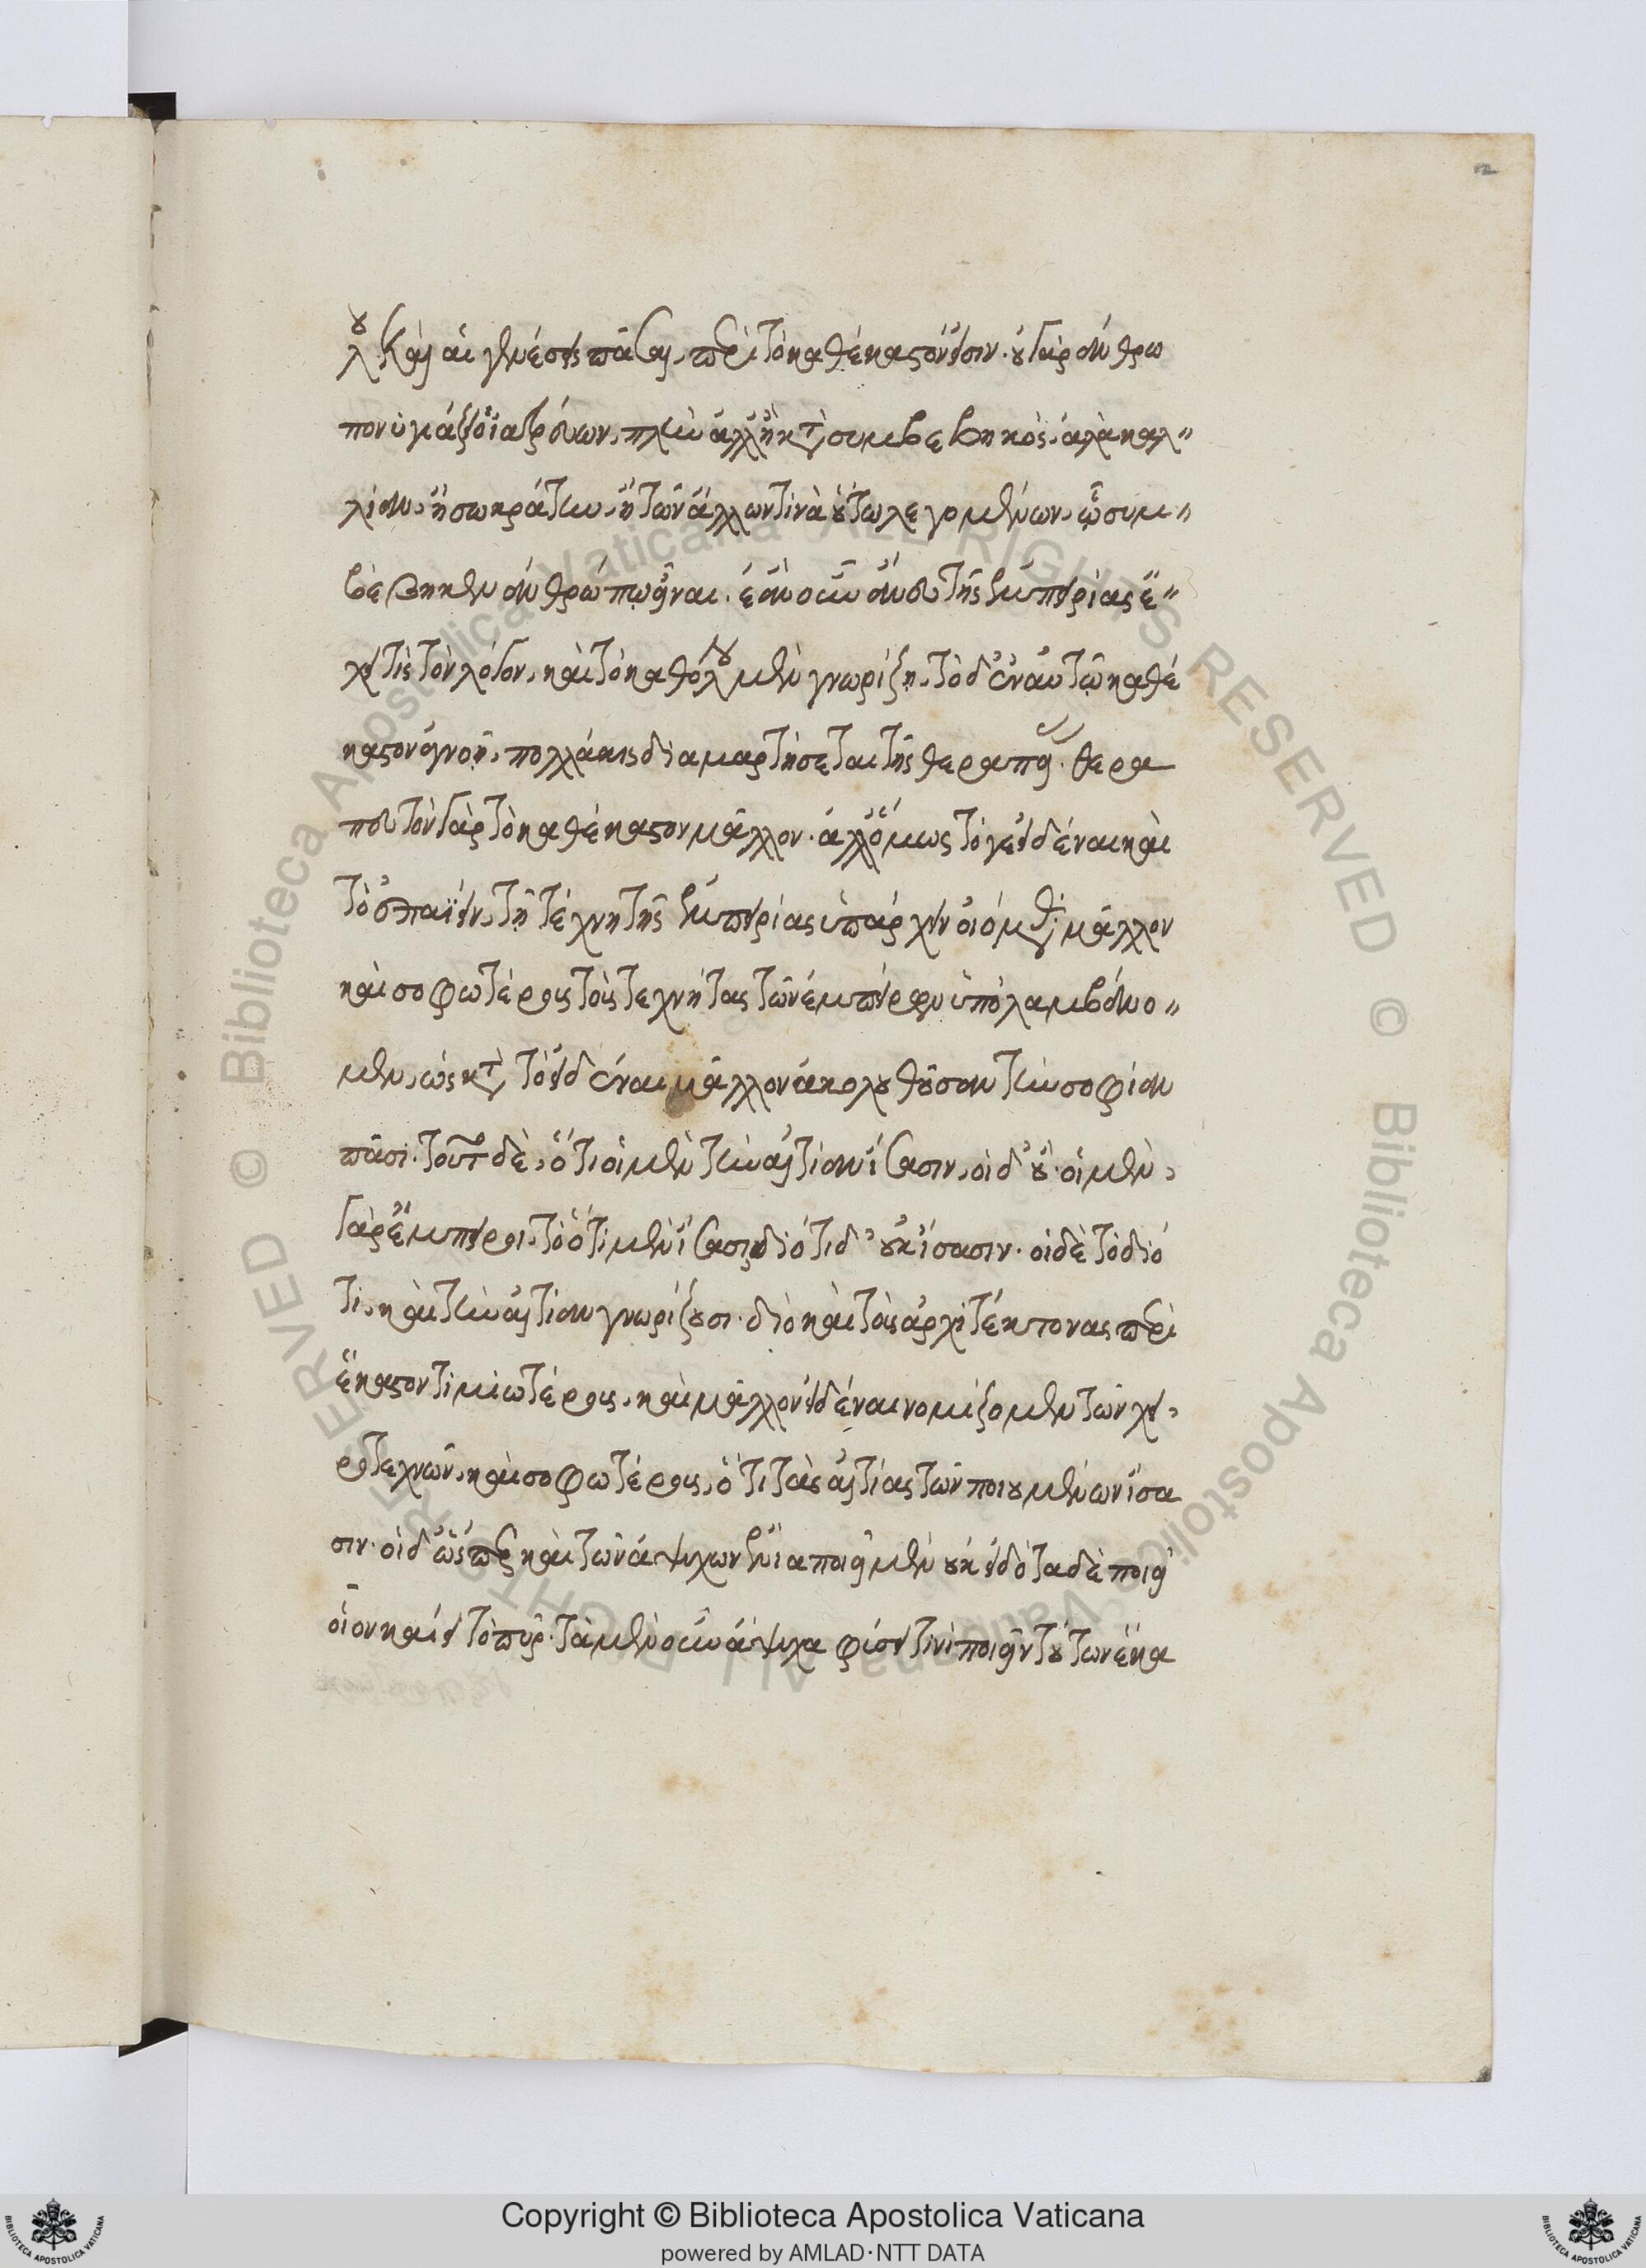 λου. Καὶ αἱ γενέσεις πᾶσαι, περὶ τὸ καθέκαστόν εἰσιν. οὐ γὰρ ἄνθρω
πον ὑγιάζει ὁ ἰατρεύων, πλὴν ἀλλ' ἢ κατὰ συμβεβηκὸς, ἀλὰ καλ"
λίαν, ἢ σωκράτην, ἢ τῶν ἄλλων τινὰ οὕτω λεγομένων, ᾧ συμ"
βέβηκεν ἀνθρώπῳ εἶναι. ἐὰν οὖν ἄνευ τῆς ἐμπειρίας ἔ"
χει τὶς τὸν λόγον, καὶ τὸ καθόλου μὲν γνωρίζῃ, τὸ δ' ἐν αὐτῷ καθέ
καστον ἀγνοῇ, πολλάκις διαμαρτήσεται τῆς θεραπείας. θερα
πευτὸν γὰρ τὸ καθέκαστον μᾶλλον. ἀλλ' ὅμως τό γε εἰδέναι καὶ
τὸ ἐπαΐειν, τῇ τέχνῃ τῆς ἐμπειρίας ὑπάρχειν οἰόμεθα μᾶλλον
καὶ σοφωτέρους τοὺς τεχνίτας τῶν ἐμπείρων ὑπολαμβάνο"
μεν, ὡς κατὰ τὸ εἰδέναι μᾶλλον ἀκολουθοῦσαν τὴν σοφίαν
πᾶσι. τοῦτο δὲ, ὅτι οἱ μὲν τὴν αἰτίαν ἴσασιν, οἱ δ' οὔ. οἱ μὲν
γὰρ ἔμπειροι, τὸ ὅτι μὲν ἴσασι, διότι δ' οὐκ ἴσασιν. οἱ δὲ τὸ διό
τι, καὶ τὴν αἰτίαν γνωρίζουσι. διὸ καὶ τοὺς ἀρχιτέκτονας περὶ
ἕκαστον τιμιωτέρους, καὶ μᾶλλον εἰδέναι νομίζομεν τῶν χει
ροτεχνῶν, καὶ σοφωτέρους, ὅτι τὰς αἰτίας τῶν ποιουμένων ἴσα
σιν. οἱ δ' ὥσπερ καὶ τῶν ἀψύχων ἔνια ποιεῖ μὲν οὐκ εἰδότα δὲ ποιεῖ
οἷον καίει τὸ πῦρ. τὰ μὲν οὖν ἄψυχα φύσει τινὶ ποιεῖν τούτων ἕκα